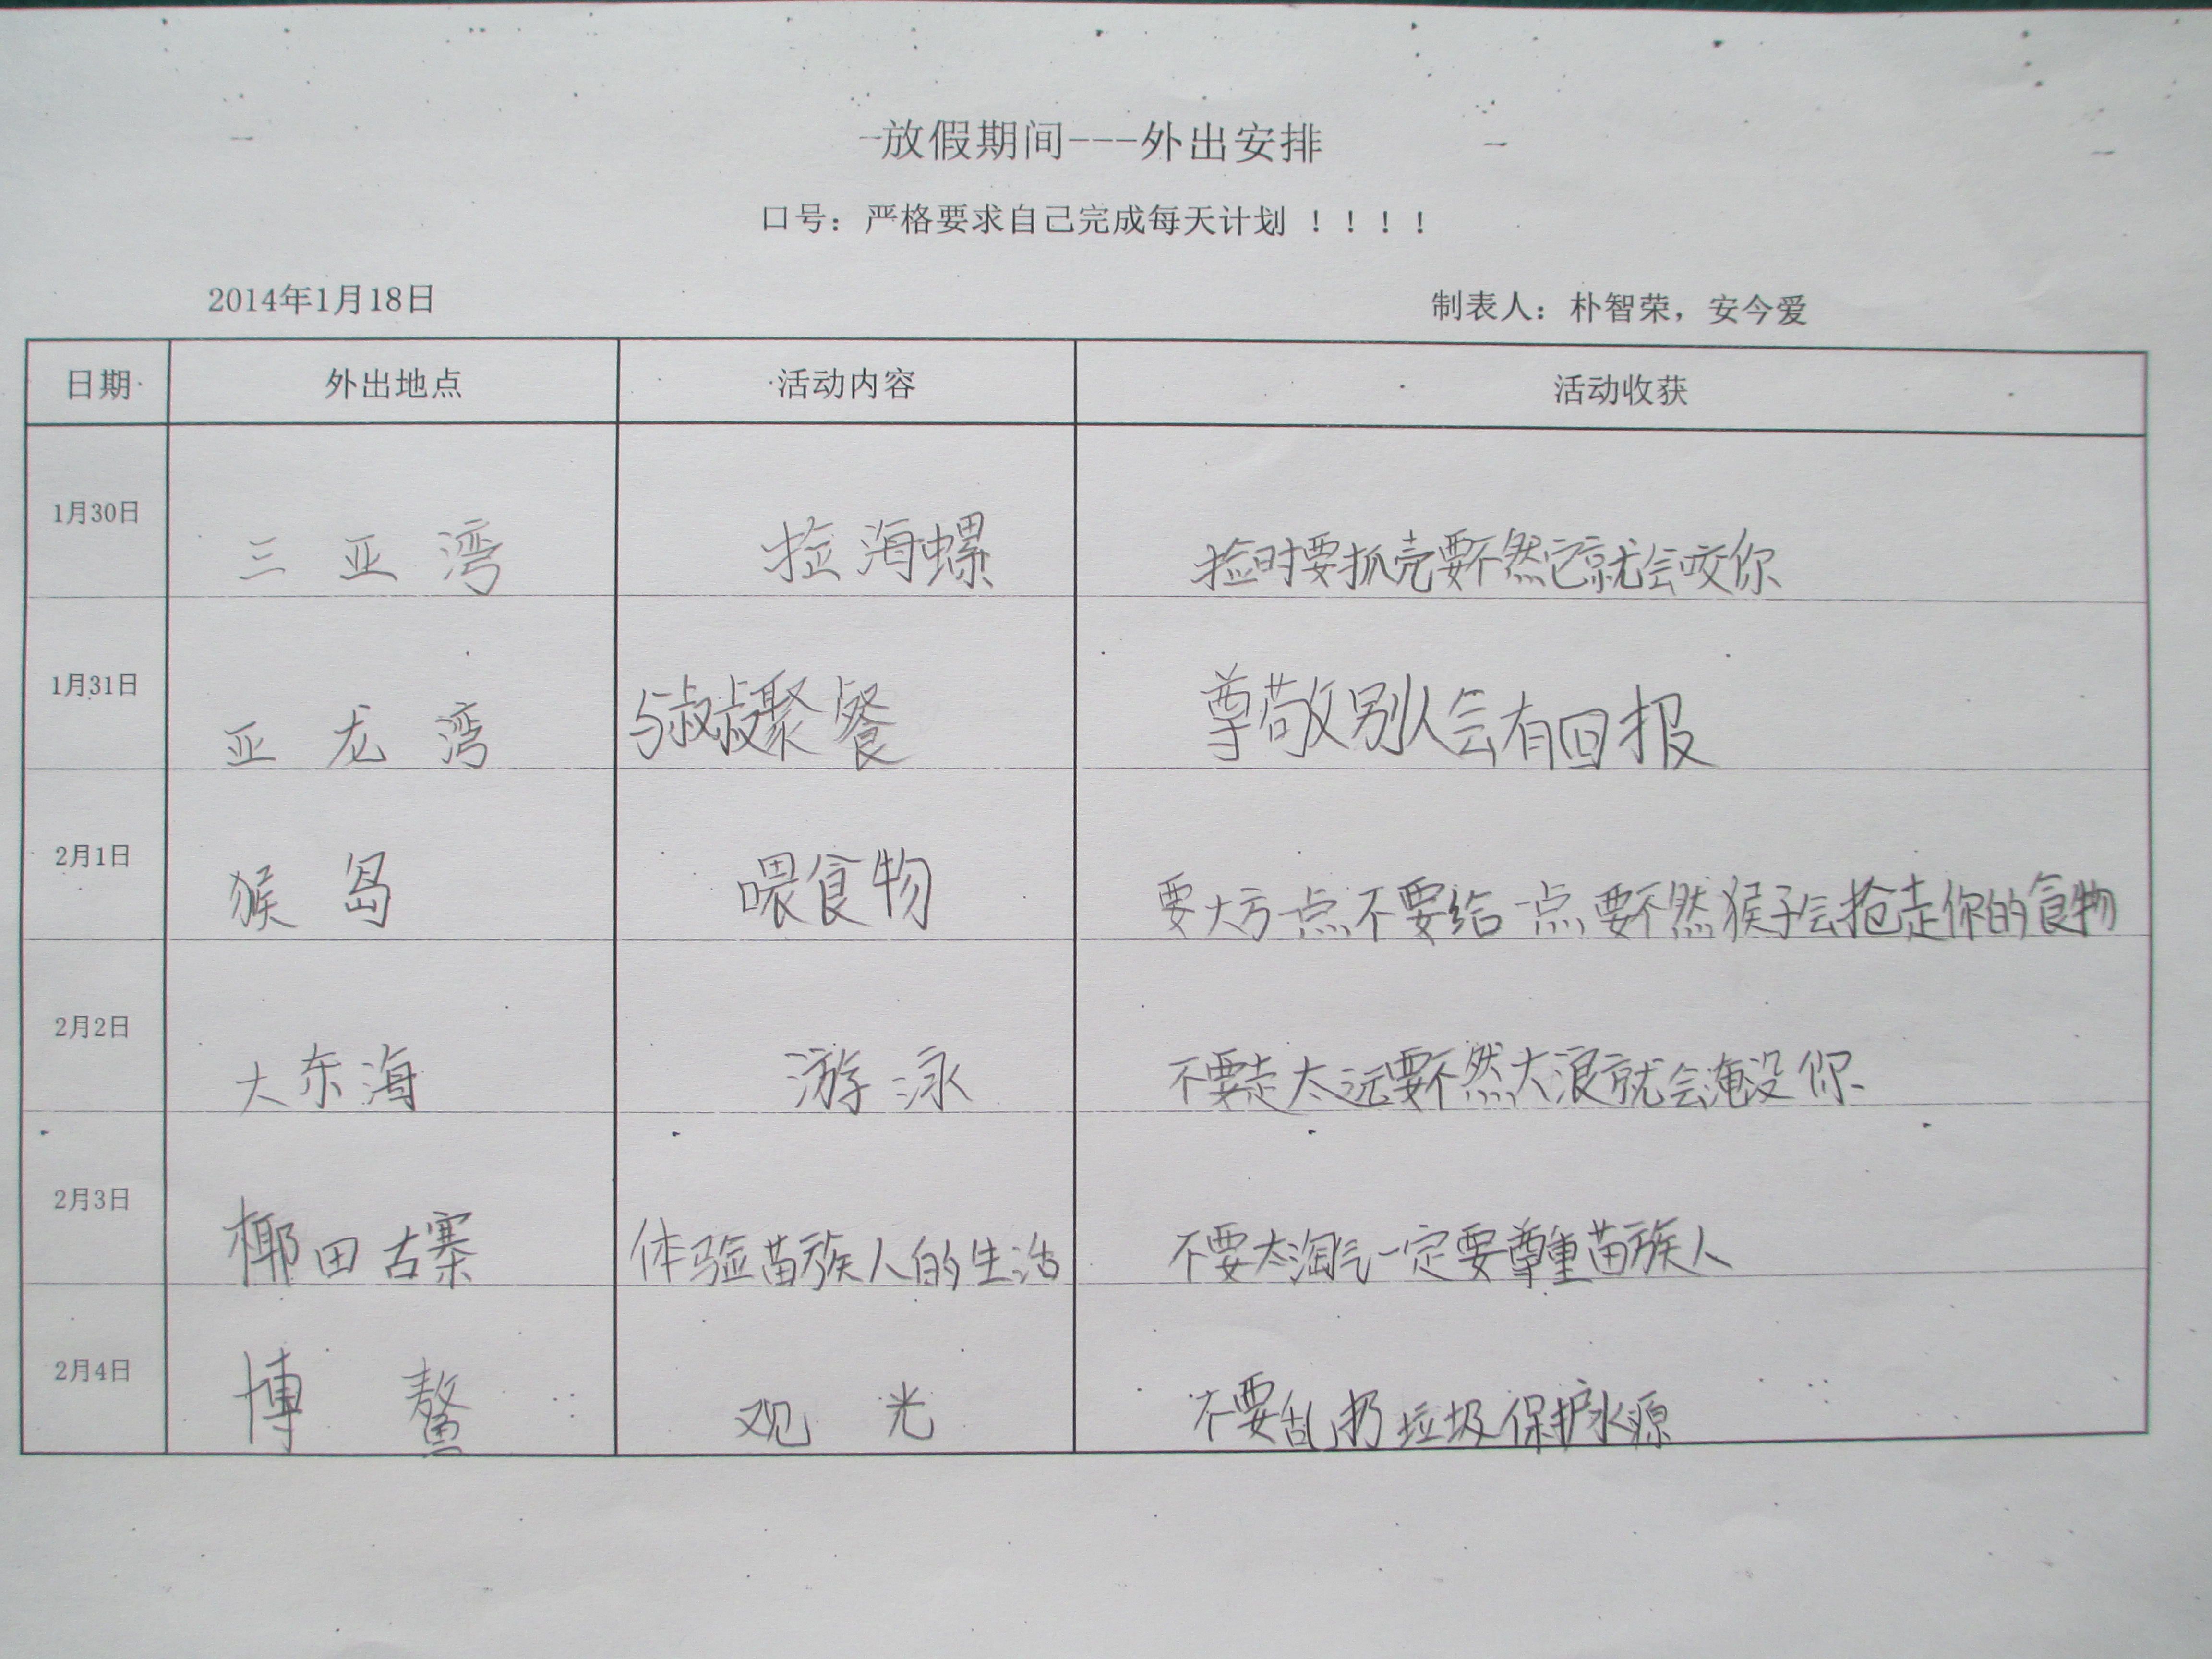 放假期间---外出安排
口号：严格要求自己完成每天计划！！！！
2014年1月18日 制表人：朴智荣，安今爱
日期 外出地点 活动内容 活动收获
1月30日 三亚湾 捡海螺 捡时要抓壳要不然它就会咬你
1月31日 亚龙湾 与叔叔聚餐 尊敬别人会有回报
2月1日 猴岛 喂食物 要大方一点不要给一点要不然猴子会抢走你的食物
2月2日 大东海 游泳 不要走太远要不然大浪就会淹没你
2月3日 椰田古寨 体验苗族人的生活 不要太淘气一定要尊重苗族人
2月4日 博鳌 观光 不要乱扔垃圾保护水源